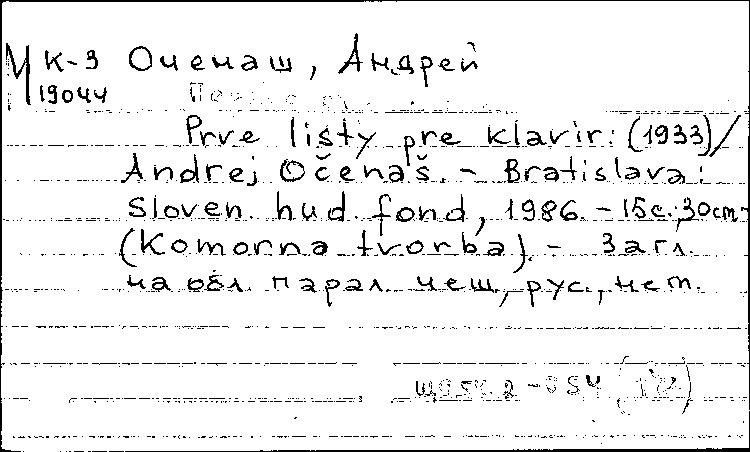 М К-3 Оченаш, Андрей
19044
Prve listy pre klavir: (1933)/
Andrej Očenaš. - Bratislava:
Sloven. hud. fond, 1986. - 15с.; 30cm-
(Komorna tvorba). - Загл.
на обл. парал. чеш., рус., нем.